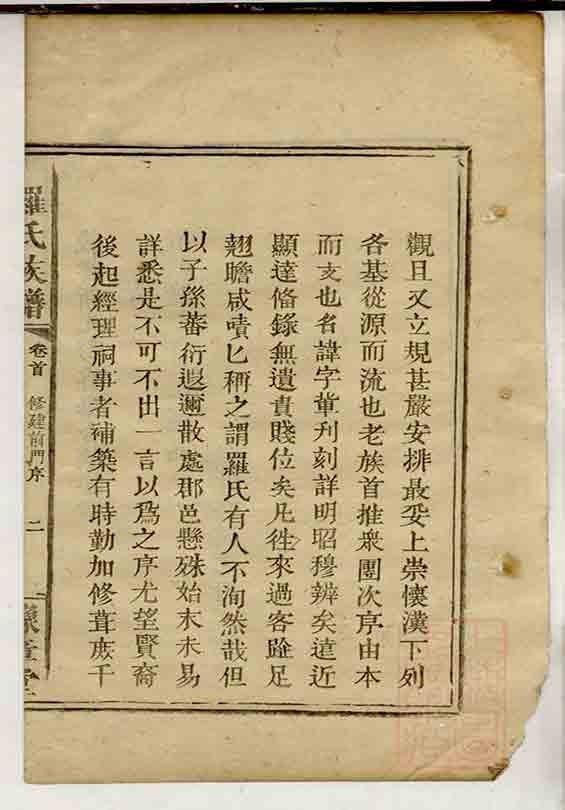 觀且又立規甚嚴安排最妥上崇懷漢下列
各基從源而流也老族首推衆團次序由本
而支也名諱字葷刋刻詳明昭穆辨矣遠近
顯達俻錄無遺貴賤位矣凡徃來過客跧足
翹瞻咸嘖匕稱之謂羅氏有人不洵然哉但
以子孫蕃衍遐邇散處郡邑懸殊始末未易
詳悉是不可不出一言以爲之序尤望賢裔
後起經理祠事者補築有時勤加修葺庻千
羅氏族譜
卷首
修建前門序
二
章堂